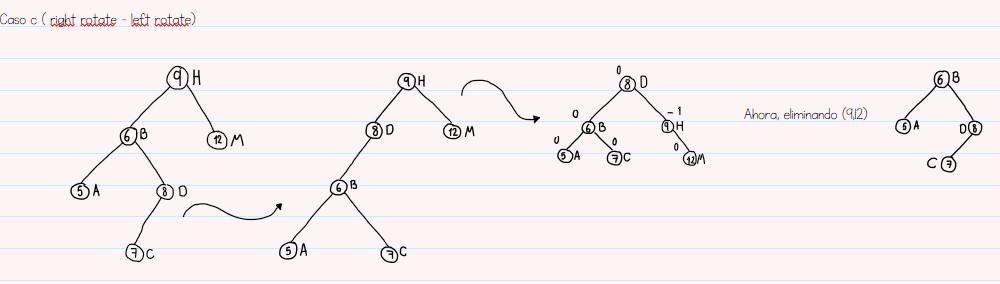 Caso c ( right rotate - left rotate)
9 H
6 B
12 M
5 A
8 D
7 C
9 H
8 D
12 M
6 B
5 A
7 C
0
8 D
0
6 B
-1
9 H
0
5 A
0
7 C
0
12 M
Ahora, eliminando (9,12)
6 B
5 A
D 8
C 7